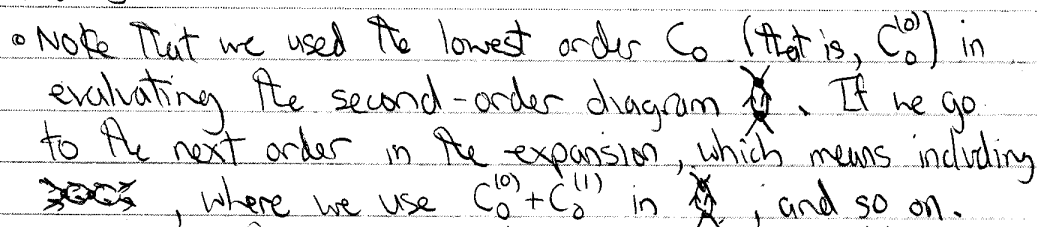 • Note that we used the lowest order C₀ (that is, C₀⁽⁰⁾) in
evaluating the second-order diagram . If we go
to the next order in the expansion, which means including
, where we use C₀⁽⁰⁾+C₀⁽¹⁾ in , and so on.